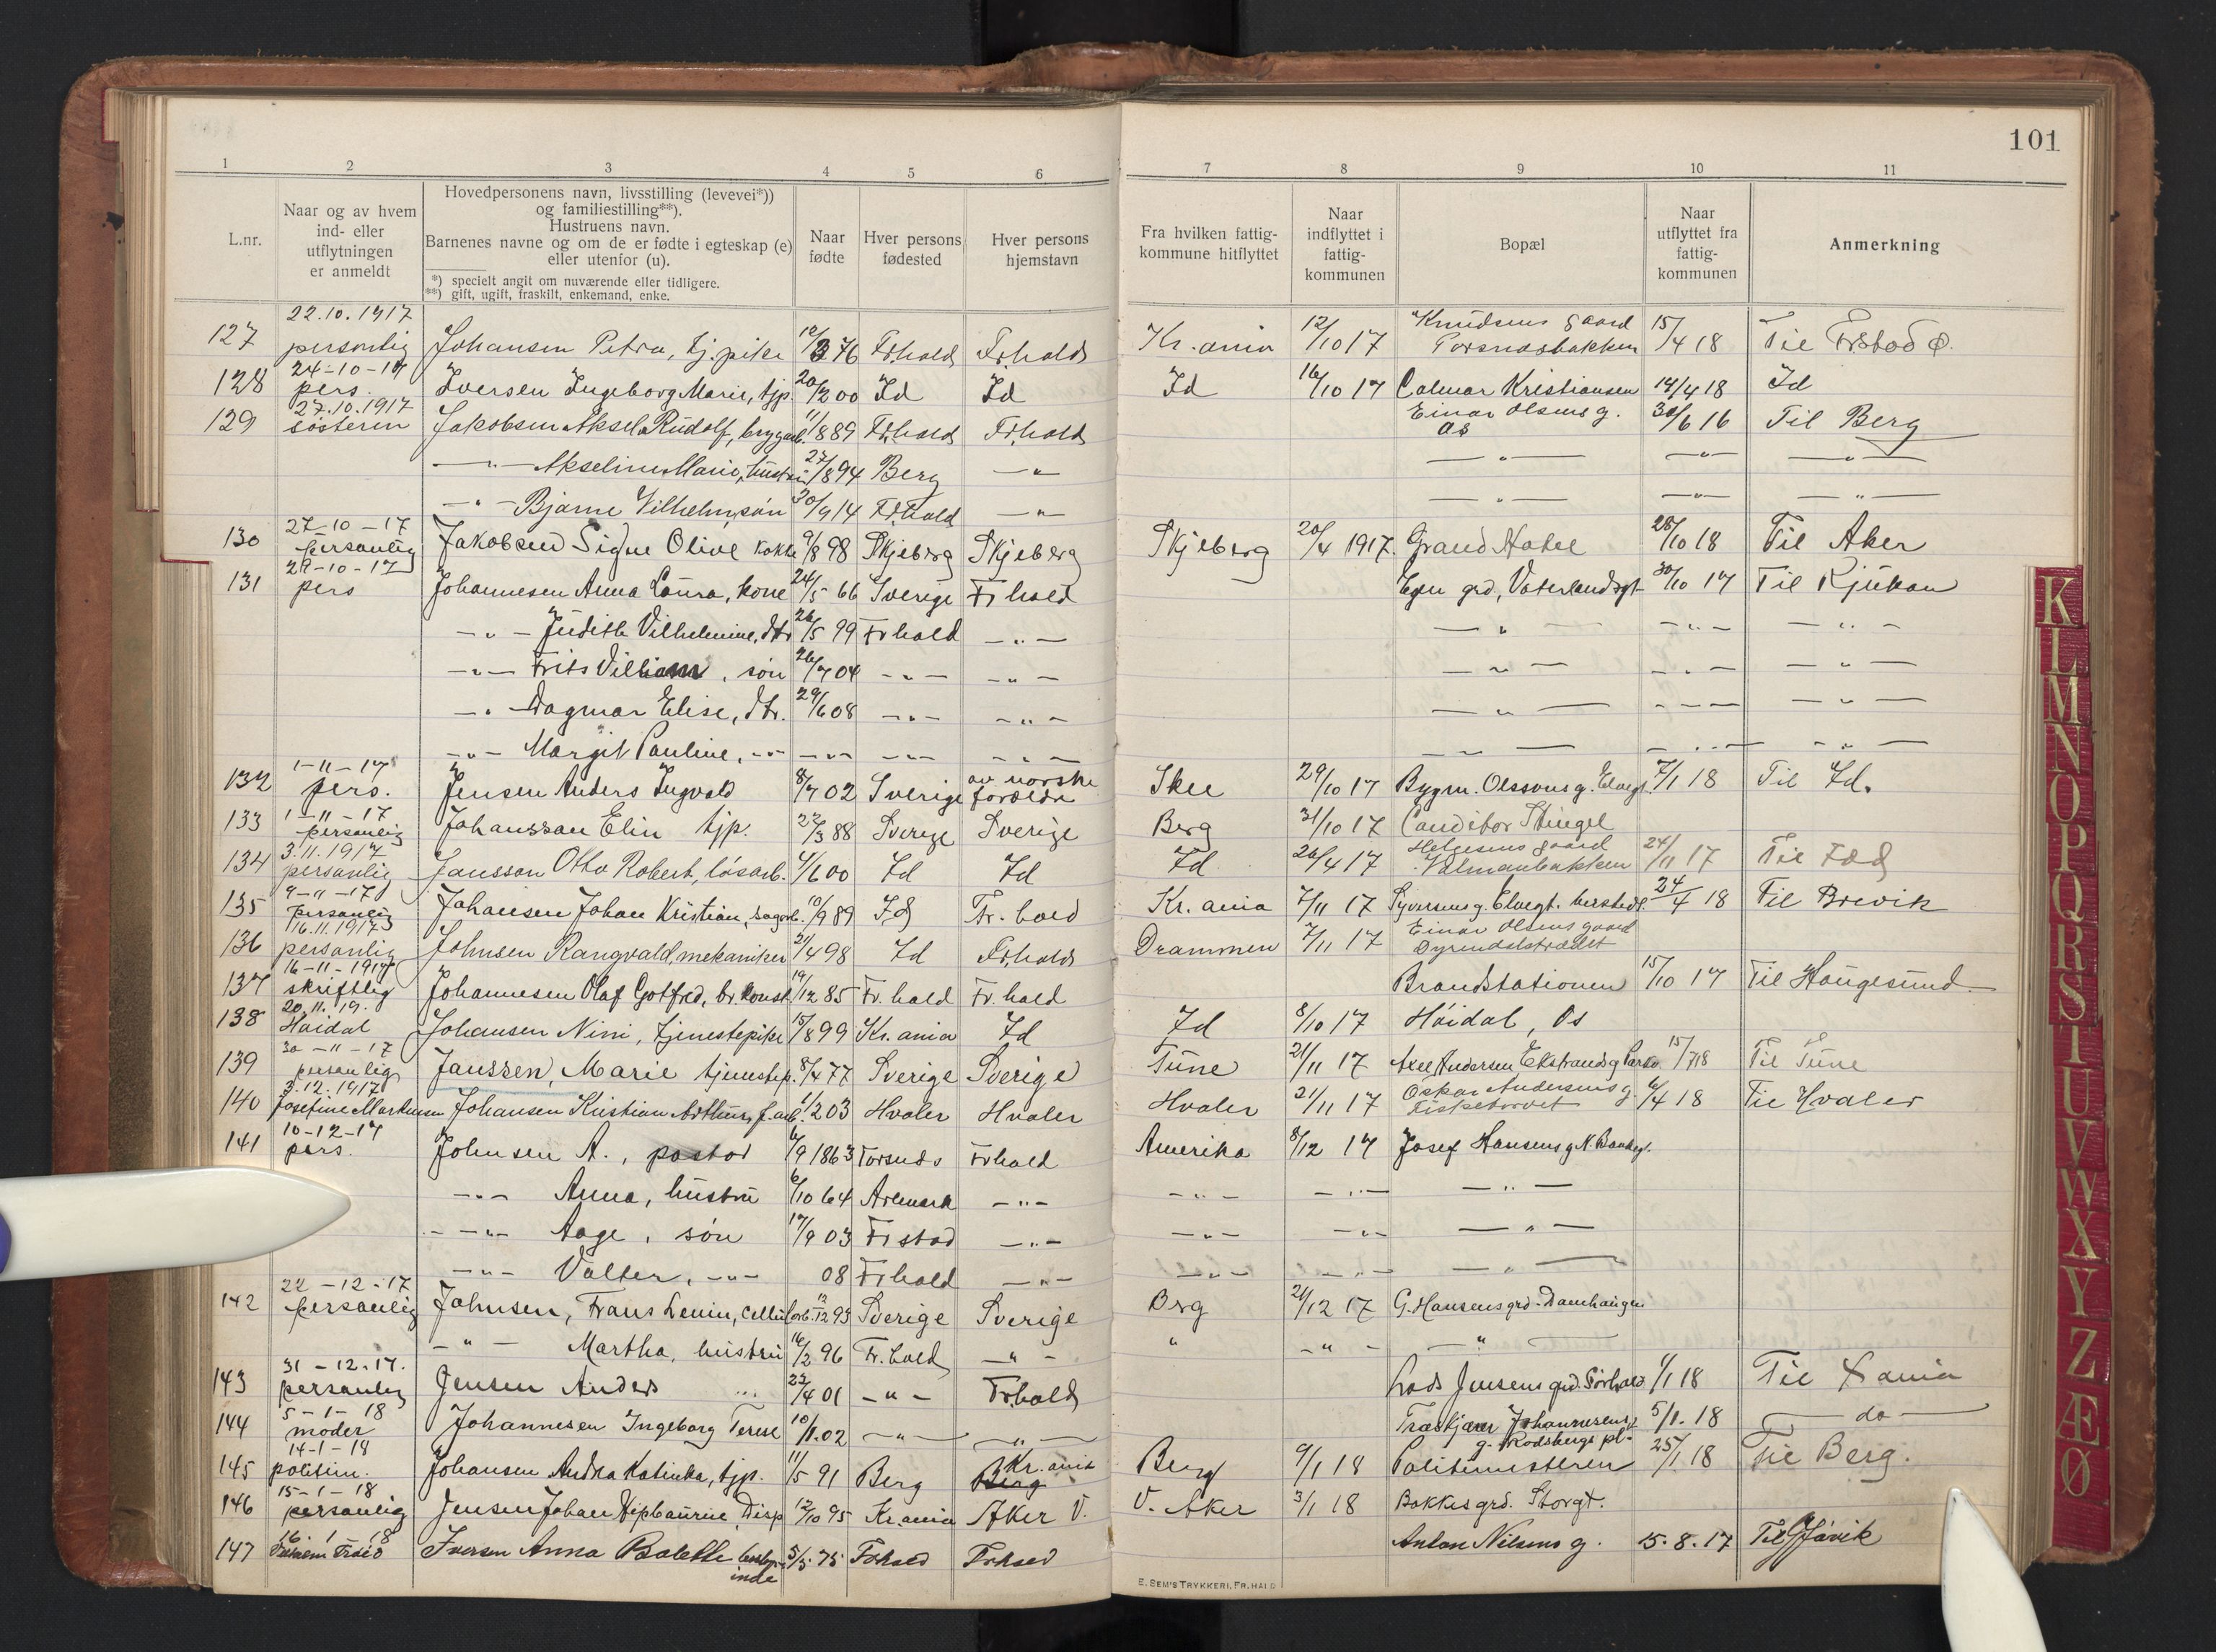 101
1 2 3 4 5 6 7 8 9 10 11
L.nr.
Naar og av hvem
ind- eller
utflytningen
er anmeldt
Hovedpersonens navn, livsstilling (levevei*))
og familiestilling**).
Hustruens navn.
Barnenes navne og om de er fødte i egteskap (e)
eller utenfor (u).
*) specielt angit om nuværende eller tidligere.
**) gift, ugift, fraskilt, enkemand, enke.
Naar
fødte
Hver persons
fødested
Hver persons
hjemstavn
Fra hvilken fattig-
kommune hitflyttet
Naar
indflyttet i
fattig-
kommunen
Bopæl
Naar
utflyttet fra
fattig-
kommunen
Anmerkning
22.10.1917 Knudsens gaard
127 personlig Johansen Petra, tj. pike 10/3 76 Fr.hald Fr.hald Kr.ania 12/10 17 15/4 18 Til Frstad Ø.
24-10-17
128 pers. Iversen Ingeborg Marie, tjp. 20/2 00 Id Id Id 16/10 17 Calmar Kristiansen 14/4 18 Id
27.10.1917 Einar Olsens g.
129 søsteren Jakobsen Aksel Rudolf, 11/8 89 Fr.hald Fr.hald Os 30/6 16 Til Berg
-"- Akseline Marie, hustru 27/8 94 Berg -"- -"- -"- -"-
-"- Bjarne Vilhelm, søn 30/9 14 Fr.hald -"- -"- -"- -"-
27-10-17
130 personlig Jakobsen Signe Olive kokke 9/8 98 Skjeberg Skjeberg Skjeberg 20/4 1917. Grand Hotel 28/10 18 Til Aker
29-10-17
131 pers Johannesen Anna Laura, kone 24/5 66 Sverige Fr hald Egen grd, Vaterlandsgt 30/10 17 Til Rjukan
-"- Judith Vilhelmine, dtr 26/5 99 Fr hald -"- -"- -"- -"-
-"- Frits Villiam, søn 26/7 04 -"- -"- -"- -"- -"-
-"- Dagmar Elise, dtr. 29/6 08 -"- -"- -"- -"- -"-
-"- Margit Pauline, -"- -"- -"- -"- -"- -"- -"-
1-11-17 av norske
132 pers. Jensen Anders Ingvald 8/7 02 Sverige forældre Skee 29/10 17 Bygm. Olssons g. Elvegt. 7/1 18 Til Id.
1-11-17
133 personlig Johansson Elin tjp. 22/3 88 Sverige Sverige Berg 31/10 17 Conditor Stengel
3.11.1917 Helgesens gaard
134 personlig Jansson Otto Robert, løsarb. 4/6 00 Id Id Id 26/4 17 Valmanbakken 24/11 17 Til
9-11-17
135 personlig Johansen Johan Kristian, 10/9 89 Id Fr. hald Kr.ania 7/11 17 Syversens g. Elvegt. 24/4 18 Til Brevik
16.11.1917 Einar Olsens gaard
136 personlig Johnsen Rangvald, mekaniker 21/4 98 Id Fr.hald Drammen 7/11 17 Dyrendalstrædet
16-11-1917
137 skriftlig Johannesen Olaf Gotfred, br. konst. 19/12 85 Fr. hald Fr. hald Brandstationen 15/10 17 Til Haugesund
20.11.19.
138 Høidal Johansen Nini, tjenestepike 15/8 99 Kr.ania Id Id 8/10 17 Høidal, Os
30-11-17
139 personlig Janssen, Marie tjenestep. 8/4 77 Sverige Sverige Tune 21/11 17 Axel Andersen Ekstrands g 15/7 18 Til Tune
3.12.1917 Oskar Andersens g.
140 Josefine Markussen Johansen Kristian Arthur, f.arb. 1/2 03 Hvaler Hvaler Hvaler 21/11 17 Fisketorvet 6/4 18 Til Hvaler
10-12-17
141 pers. Johnsen A., pastor 6/9 1863 Torsnes Frhald Amerika 8/12 17 Josef Hansens g N. Bankegt.
-"- Anna, hustru 6/10 64 Aremark -"- -"- -"- -"-
-"- Aage, søn 17/9 03 Frstad -"- -"- -"- -"-
-"- Valter, -"- 08 Frhald -"- -"- -"- -"-
22-12-17
142 personlig Johnsen, Frans Lenin, cellul.arb. 12/12 93 Sverige Sverige Berg 21/12 17 G. Hansens grd. Damhaugen
-"- Martha, hustru 16/2 96 Fr. hald -"- " -"- -"-
31-12-17.
143 personlig Jensen Anders 22/4 01 -"- Fr.hald Lads Jensens grd. Sørhald. 1/1 18 Til Kr.ania
5-1-18
144 moder Johannesen Ingeborg Terese 10/1.02 -"- -"- Træskjærer Johannesens 5/1. 18 do
14-1-18 Kr. ania g. Rødsbergs pl.
145 politim. Johansen Andra Katinka, tjp. 11/5 91 Berg Berg Berg 9/1 18 Politimesteren 25/1 18 Til Berg.
15-1-18
146 personlig Jensen Johan Disp 12/10 95 Kr.ania Aker V. V. Aker 3/1 18 Bakkes grd. Storgt.
16.1 18
147 Iversen Anna Bolette 5/5 75 Frhald Frhald Anton Nilsens g. 15.8.17 Til Gjøvik
E. SEM'S TRYKKERI, FR.HALD
K L M N O P Q R S T U V W X Y Z Æ Ø